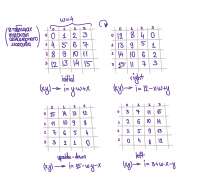 w=4
0 1 2 3
0 0 1 2 3
1 4 5 6 7
2 8 9 10 11
3 12 13 14 15
0 1 2 3
0 12 8 4 0
1 13 9 5 1
2 14 10 6 2
3 15 11 7 3
right
(x,y) → in y·w+x
(x,y) → in 12-x·w+y
0 1 2 3
0 15 14 13 12
1 11 10 9 8
2 7 6 5 4
3 3 2 1 0
0 1 2 3
0 3 7 11 15
1 2 6 10 14
2 1 5 9 13
3 0 4 8 12
upside-down
left
(x,y) → in 15-w·y-x
(x,y) → in 3+w·x-y